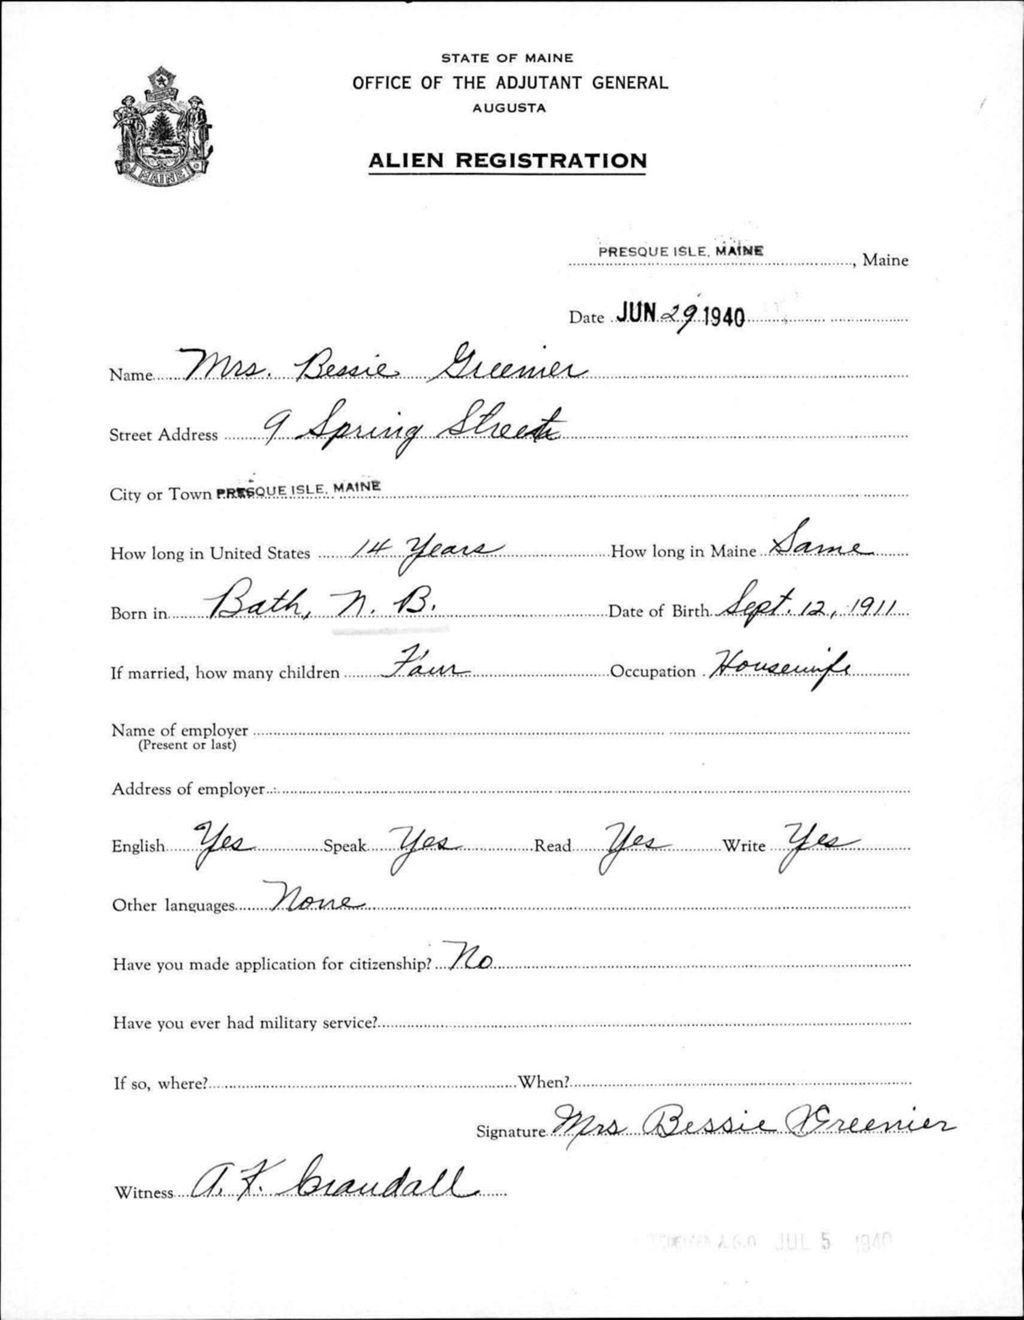 STATE OF MAINE
OFFICE OF THE ADJUTANT GENERAL
AUGUSTA
ALIEN REGISTRATION
MAINE
PRESQUE ISLE, MAINE, Maine
Date JUN 29 1940
Name Mrs. Bessie Greenier
Street Address 9 Spring Street
City or Town PRESQUE ISLE, MAINE
How long in United States 14 Years How long in Maine Same
Born in Bath, N. B. Date of Birth Sept. 12, 1911
If married, how many children Four Occupation Housewife
Name of employer
(Present or last)
Address of employer
English Yes Speak Yes Read Yes Write Yes
Other languages None
Have you made application for citizenship? No
Have you ever had military service?
If so, where? When?
Signature Mrs Bessie Greenier
Witness A. F. Crandall
A.G.O. JUL 5 1940